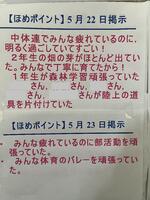 【ほめポイント】5月22日掲示
中体連でみんな疲れているのに、
明るく過ごしていてすごい！
２年生の畑の芽がほとんど出てい
た。みんなで丁寧に育てたから！
１年生が森林学習頑張っていた
さん、さん、
さん、さんが陸上の道
具を片付けていた
【ほめポイント】5月23日掲示
みんな疲れているのに部活動を頑
張っていた。
みんな体育のバレーを頑張ってい
た。